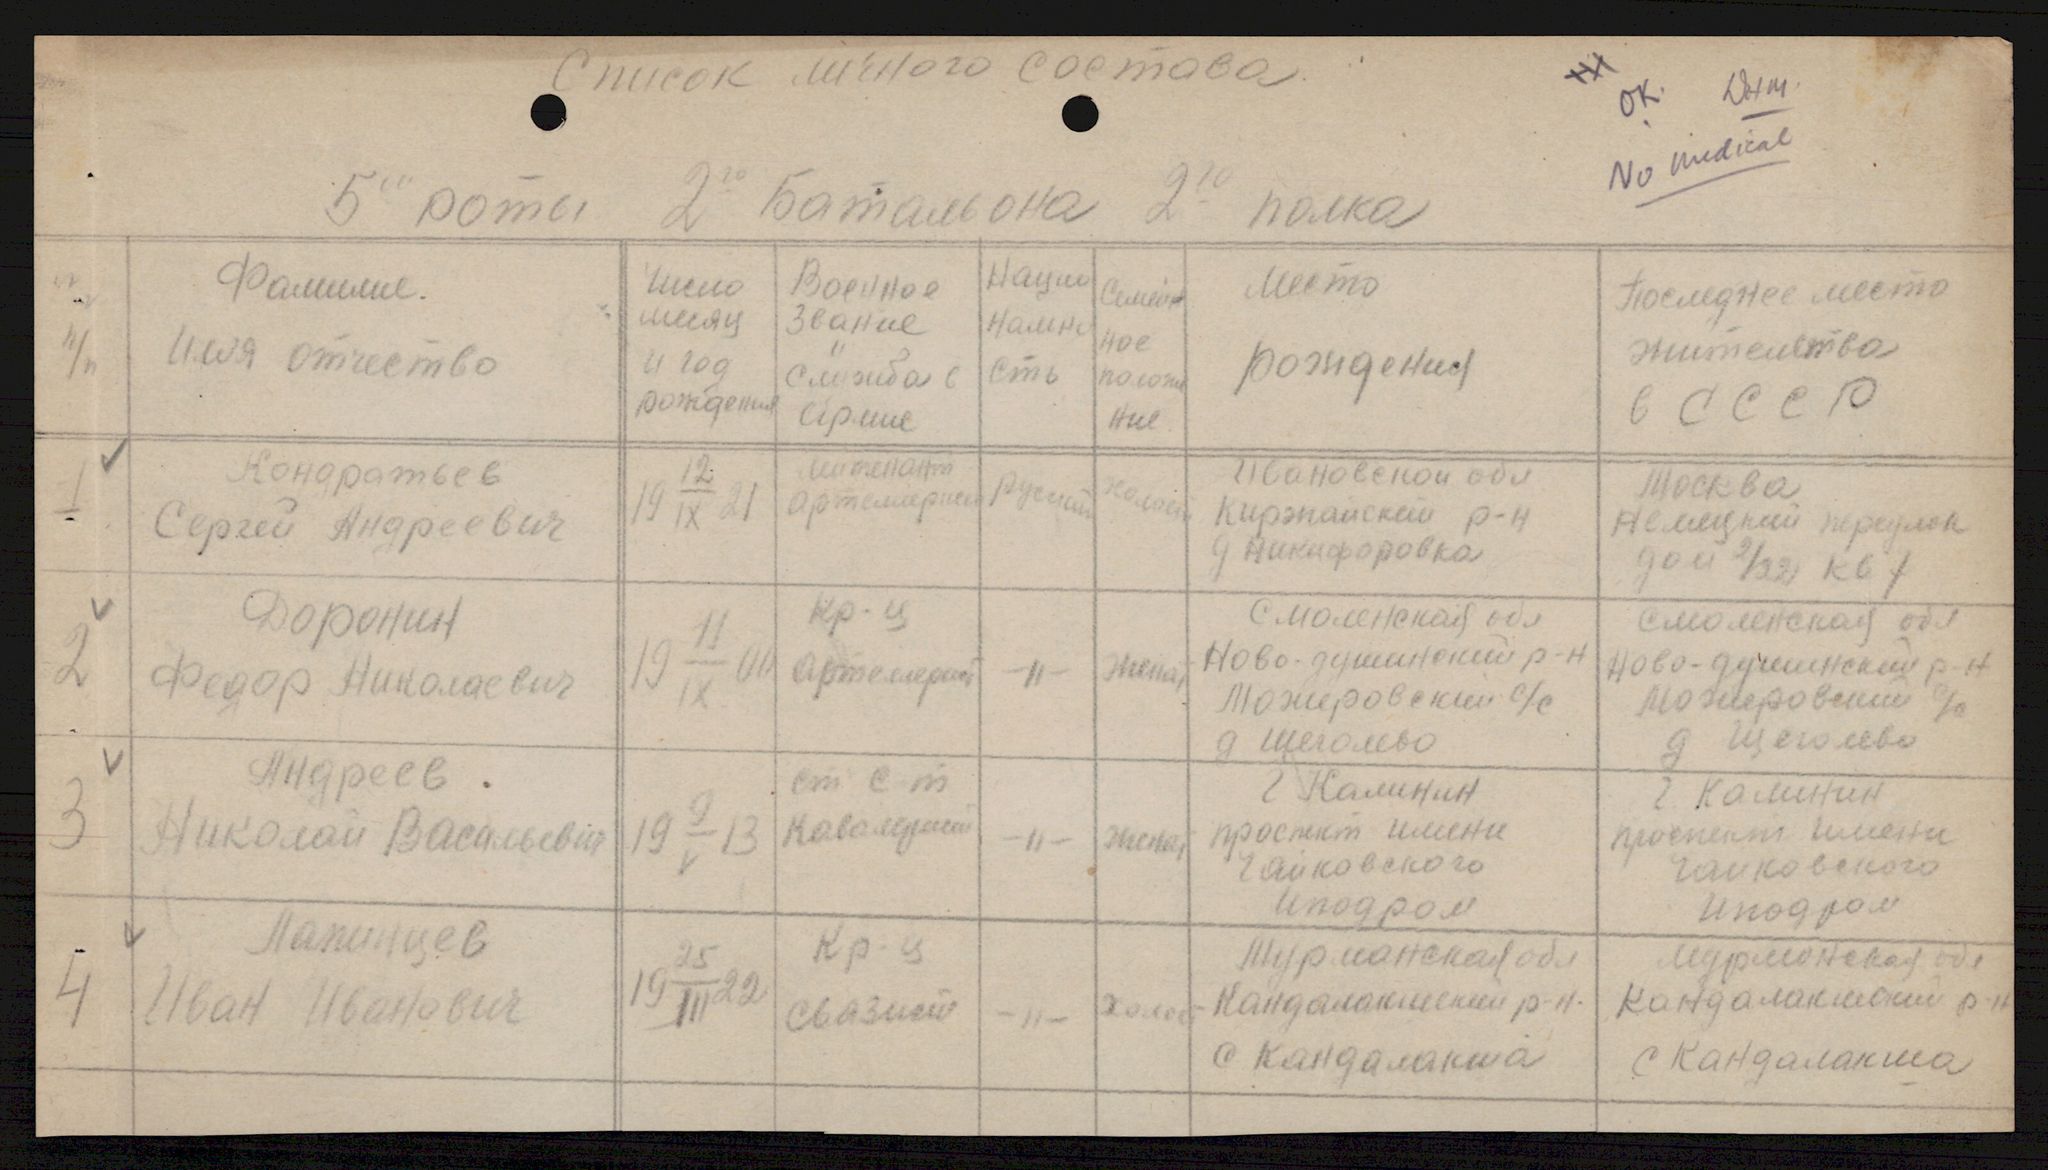 Список личного состава
ОК. Dнт.
No medical
5ой роты 2го Батальона 2го полка
№№ п/п
Фамилие.
Имя отчество
Число
месяц
и год
рождения
Военное
Звание
и
служба в
Армие
Нацио
нально
сть
Семей
ное
положе
ние
Место
рождения
Последнее место
жительства
в СССР
1
Кондратьев
Сергей Андреевич
19 12/IX 21
литенант
артеллерист
Руский
холост
Ивановской обл
Киржайский р-н
д Никифоровка
Москва
Немецкий переулок
дом 9/22 кв 1
2
Доронин
Федор Николаевич
19 11/IX 00
Кр-ц
артеллерист
-"-
женат
Смоленская обл
Ново-душинский р-н
Можировский с/с
д Щегольво
Смоленская обл
Ново-душинский р-н
Можировский с/с
д Щегольво
3
Андреев.
Николай Васильевич
19 9/V 13
ст с-т
Кавалерист
-"-
женат
г Калинин
проспект имени
Чайковского
Иподром
г Калинин
проспект имени
Чайковского
Иподром
4
Лапинцев
Иван Иванович
19 25/III 22
Кр-ц
Связист
-"-
Холост
Мурманская обл
Кандалакшский р-н.
с Кандалакша
Мурманская обл
Кандалакшский р-н
с Кандалакша